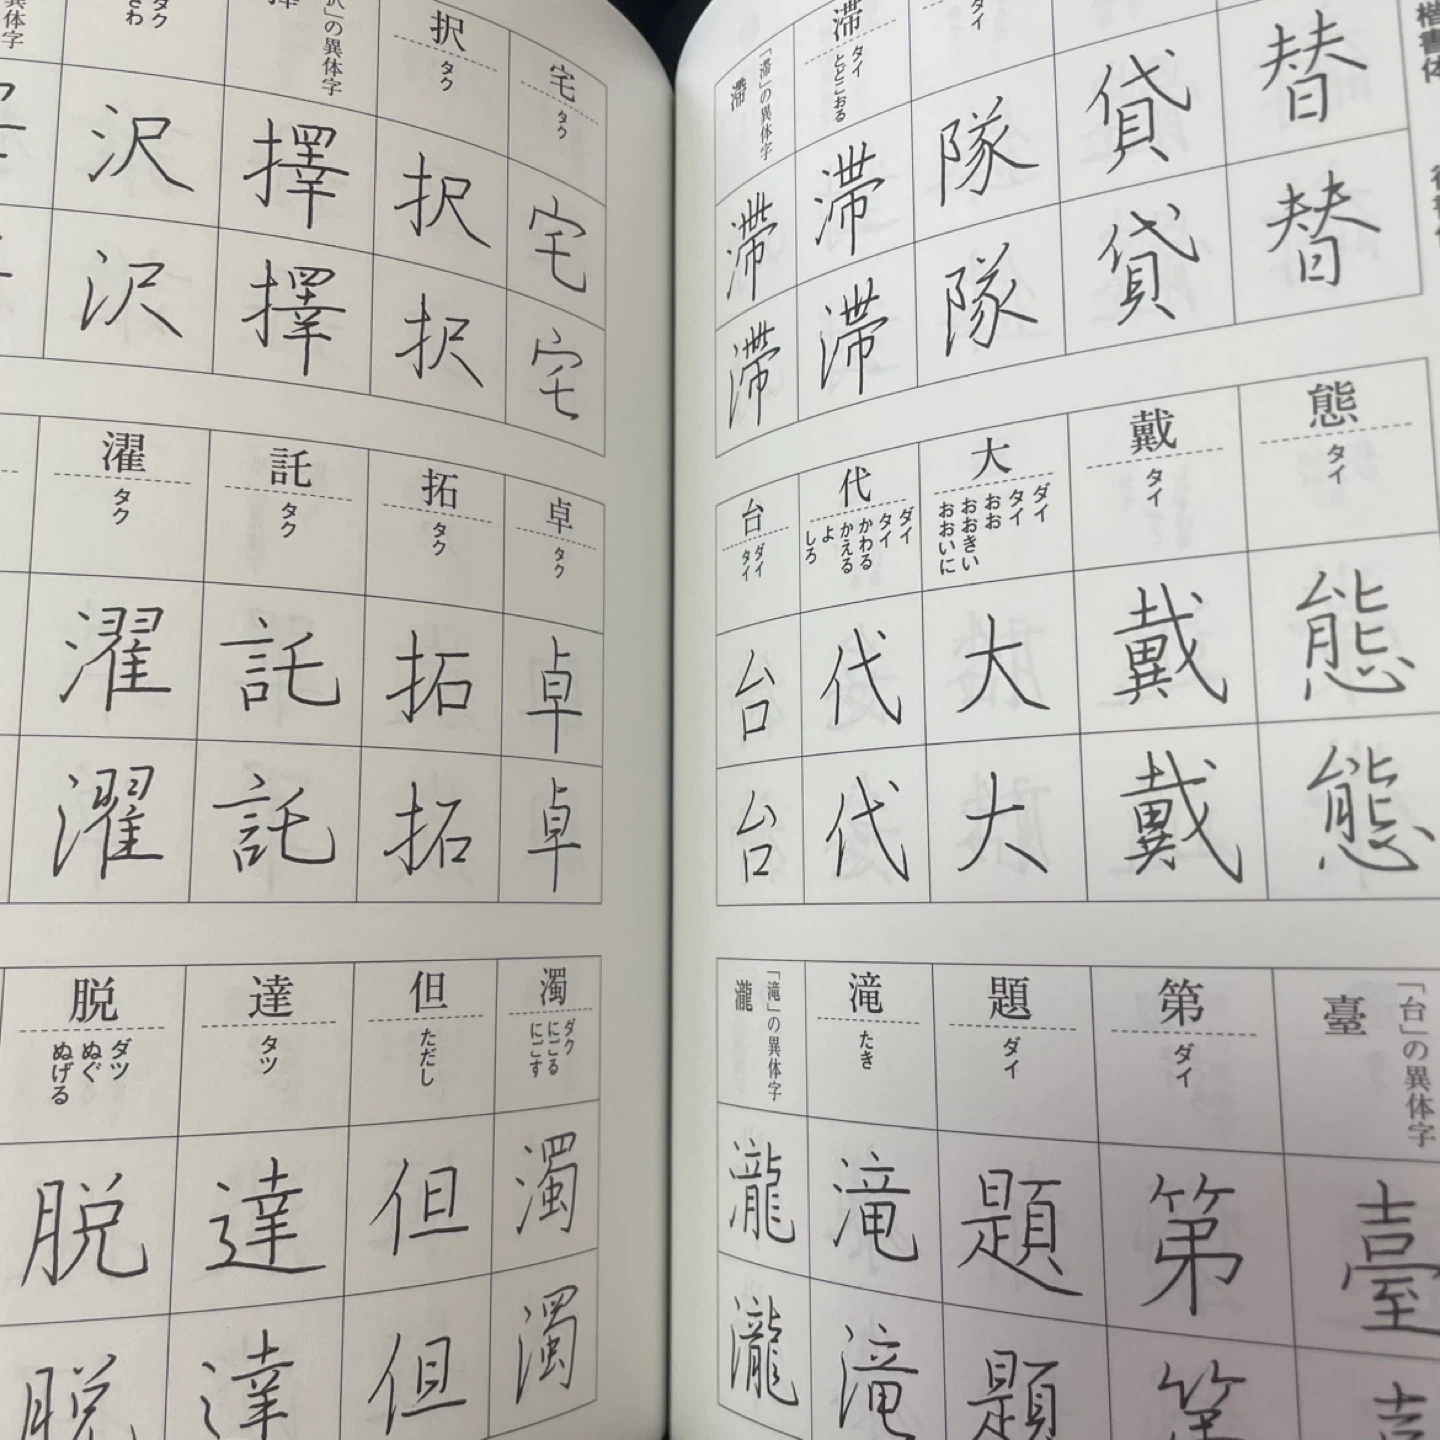 楷書体
替
替
貸
貸
タイ
隊
隊
滞
タイ
とどこおる
滞
滞
「滞」の異体字
滯
滯
滯
態
タイ
態
態
戴
タイ
戴
戴
大
ダイ
タイ
おお
おおきい
おおいに
大
大
代
ダイ
タイ
かわる
かえる
よ
しろ
代
代
台
ダイ
タイ
台
台
「台」の異体字
臺
臺
第
ダイ
第
第
題
ダイ
題
題
滝
たき
滝
滝
「滝」の異体字
瀧
瀧
瀧
宅
タク
宅
宅
択
タク
択
択
択」の異体字
擇
擇
タク
さわ
沢
沢
異体字
卓
タク
卓
卓
拓
タク
拓
拓
託
タク
託
託
濯
タク
濯
濯
濁
ダク
にごる
にごす
濁
濁
但
ただし
但
但
達
タツ
達
達
脱
ダツ
ぬぐ
ぬげる
脱
脱